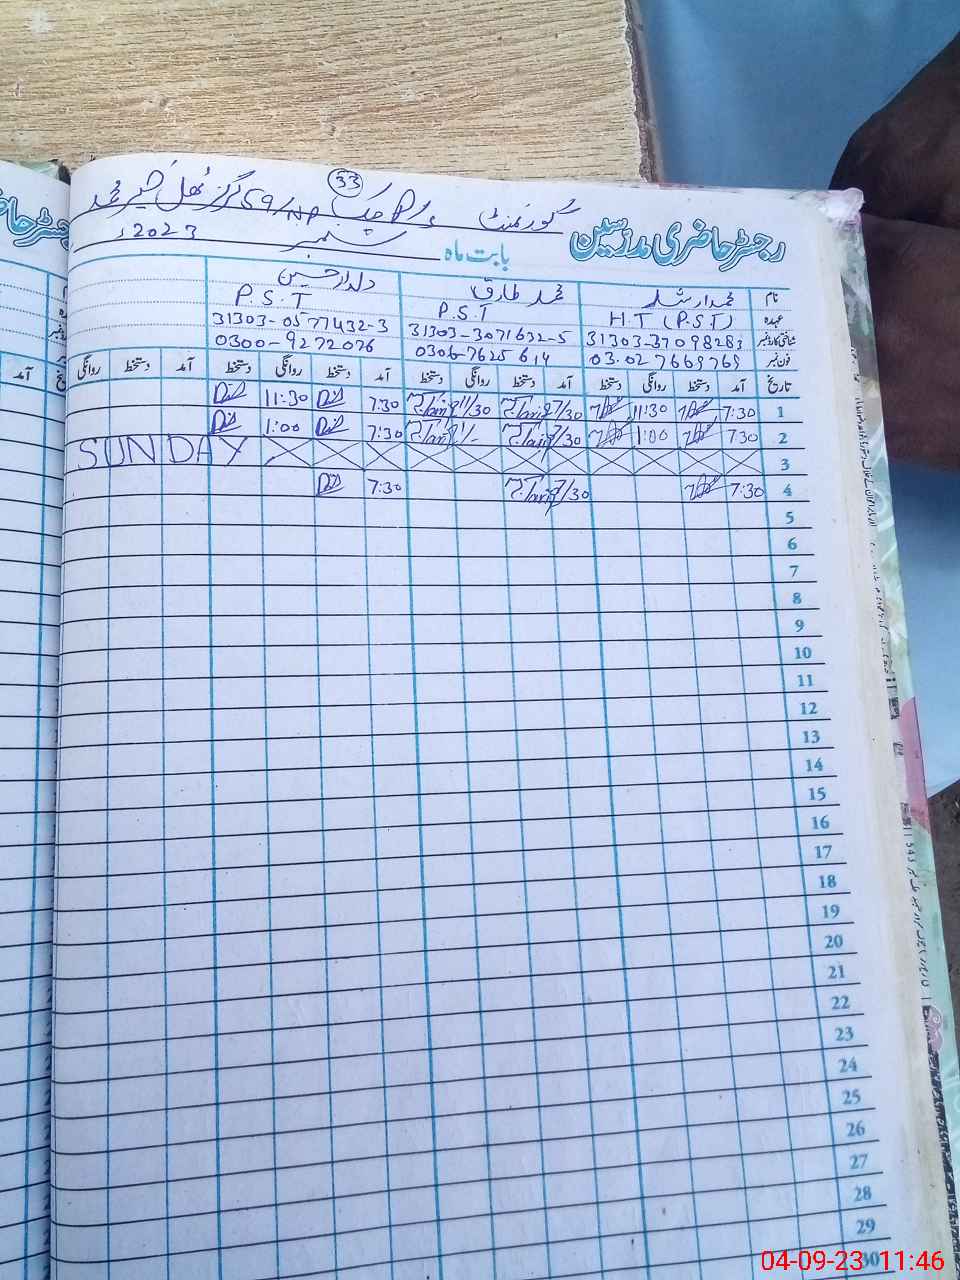 33
گورنمنٹ P/S چک 59/NP گرلز تھل خیر محمد
رجسٹر حاضری مدرسین
بابت ماہ ستمبر 2023ء
نام محمد ارشد محمد طارق دلدار حسین
عہدہ H.T (P.S.T) P.S.T P.S.T
شناختی کارڈ نمبر 31303-3709828-3 31303-3071632-5 31303-0577432-3
فون نمبر 03027669769 0306-7625614 0300-9272076
تاریخ آمد دستخط روانگی دستخط آمد دستخط روانگی دستخط آمد دستخط روانگی دستخط آمد دستخط روانگی
1 7:30 11:30 7/30 Tariq 11/30 Tariq 7:30 11:30
2 7:30 1:00 7/30 Tariq 1/- Tariq 7:30 1:00
3 SUNDAY
4 7:30 7/30 Tariq 7:30
5
6
7
8
9
10
11
12
13
14
15
16
17
18
19
20
21
22
23
24
25
26
27
28
29
30
04-09-23 11:46